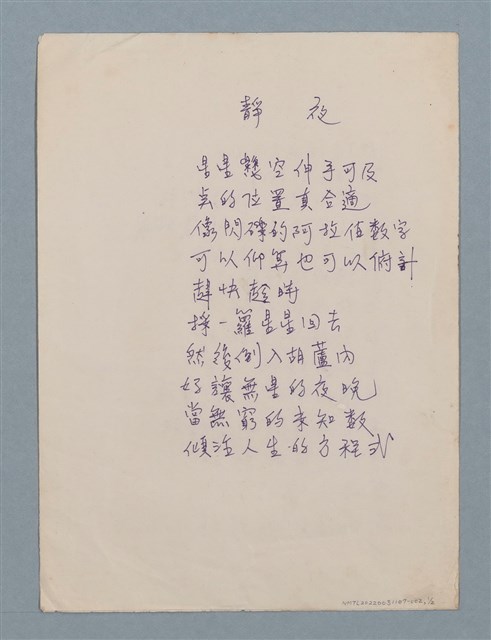 靜 夜
星星幾空伸手可及
的位置真合適
像閃礫的阿拉伯数字
可以仰算也可以俯計
趕快趁時
採一籮星星回去
然後倒入胡蘆內
好讓無星的夜晚
當無窮的未知数
傾注人生的方程式